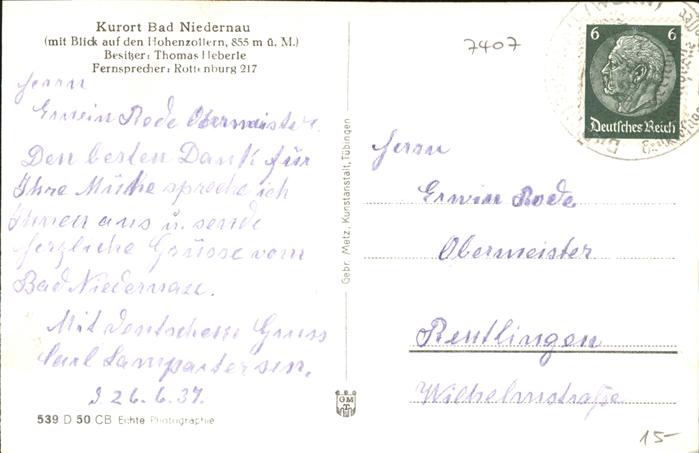 Kurort Bad Niedernau
(mit Blick auf den Hohenzollern, 855 m ü. M.)
Besitzer: Thomas Heberle
Fernsprecher: Rottenburg 217
Herrn
Erwein Rode Obermeister.
Den besten Dank für
Ihre Mühe spreche ich
Ihnen aus u. sende
herzliche Grüsse vom
Bad Niedernau.
Mit deutschem Gruss
Carl Lamparter sen.
26.6.37.
539 D 50 CB Echte Photographie
Gebr. Metz, Kunstanstalt, Tübingen
GM
7407
6 6
Deutsches Reich
Herrn
Erwin Rode
Obermeister
Reutlingen
Wilhelmstraße
15-